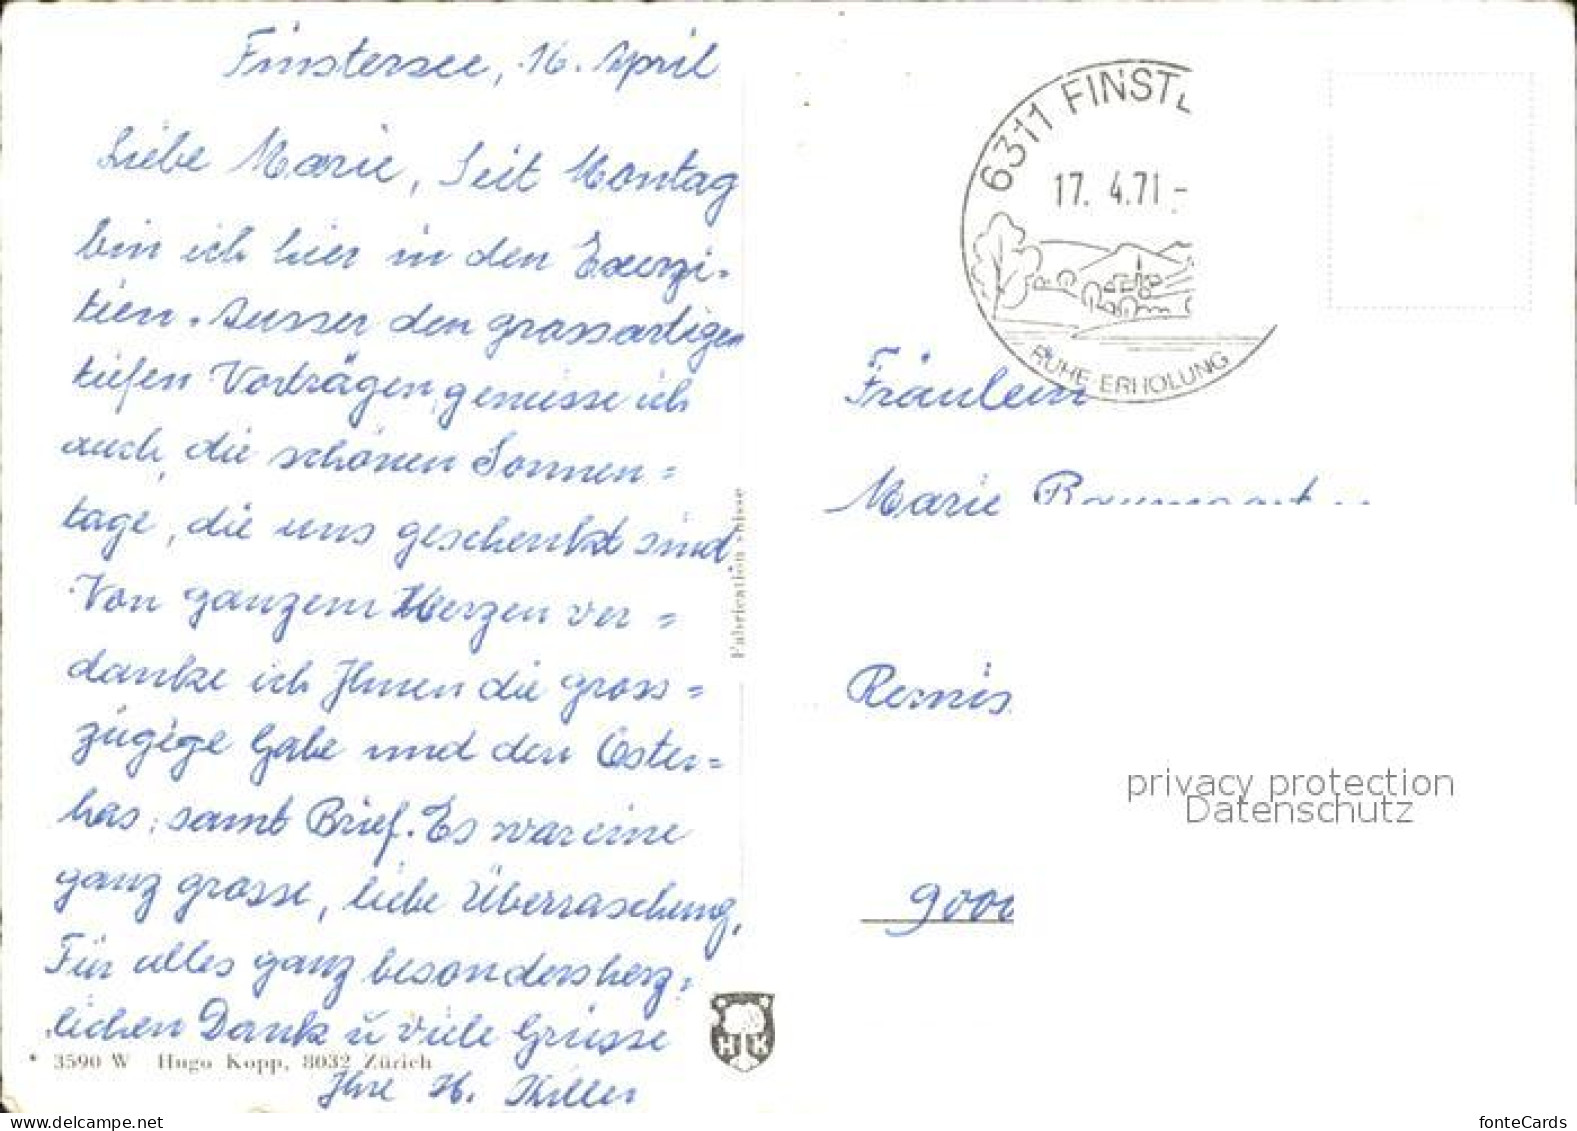 Finstersee, 16. April
Liebe Marie, Seit Montag
bin ich hier in den Exerzi-
tien. Ausser den grossartigen
tiefen Vorträgen, geniesse ich
auch, die schönen Sonnen=
tage, die uns geschenkt sind.
Von ganzem Herzen ver=
danke ich Ihnen die gross=
zügige Gabe und den Oster=
has, samt Brief. Es war eine
ganz grosse, liebe Überraschung,
Für alles ganz besonders herz=
lichen Dank u viele Grüsse
Ihre H.
* 3590 W Hugo Kopp, 8032 Zürich
Fabrication suisse
HK
6311 FINST
17. 4.71-
RUHE ERHOLUNG
Fräulein
Marie
privacy protection
Datenschutz
900
delcampe.net
fonteCards